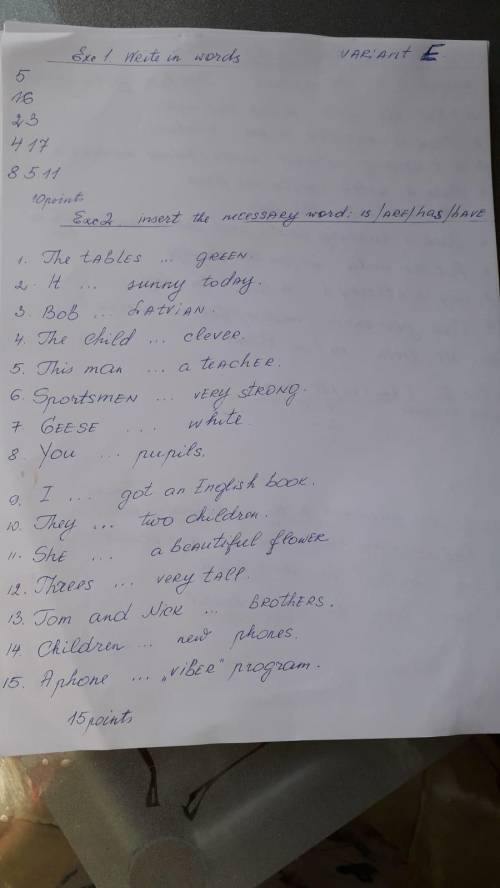 Exc 1. Write in words VARiAnt E
5
16
23
4 17
8 5 11
10points
Exc 2. insert the necessary word: is/ARE/has/hAVE
1. The tABLES ... gREEN.
2. It ... sunny today.
3. Bob ... Latvian.
4. The child ... clever.
5. This man ... a teacher.
6. Sportsmen ... very strong.
7. GEESE ... white.
8. You ... pupils.
9. I ... got an English book.
10. They ... two children.
11. She ... a beautiful flower
12. Threes ... very tall.
13. Tom and Nick ... brothers.
14. Children ... new phones.
15. A phone ... „Viber" program.
15points